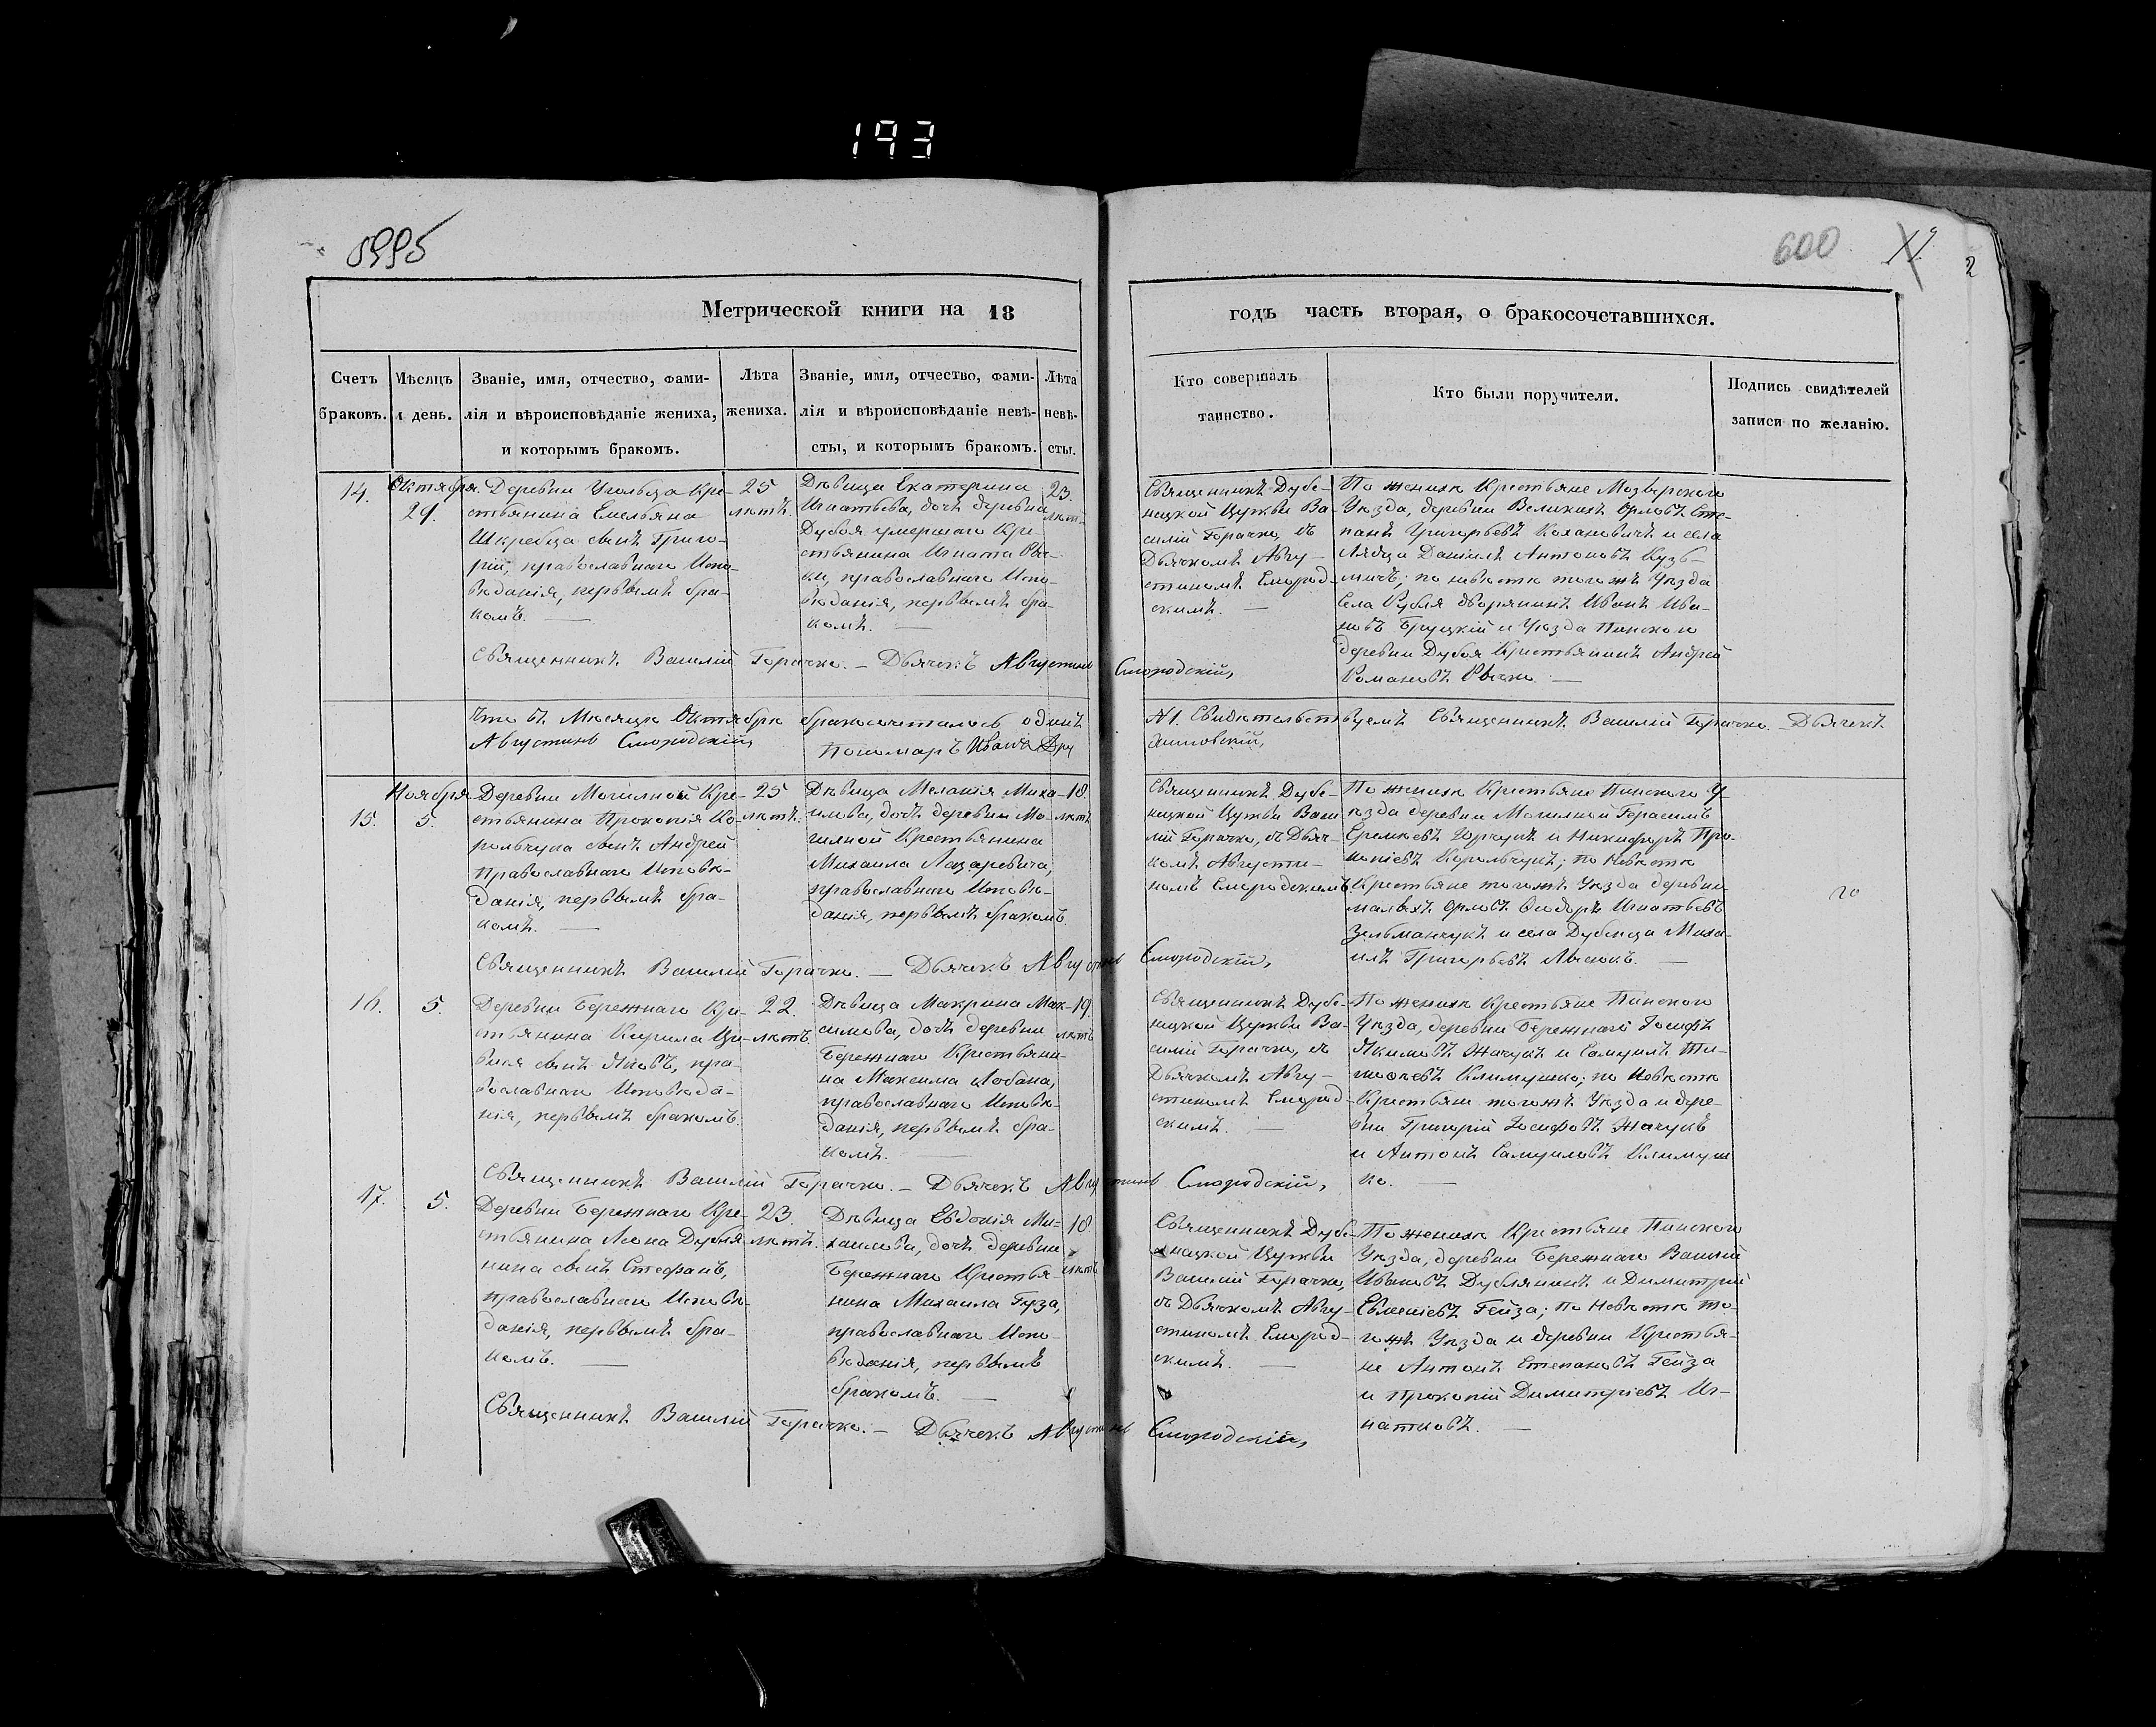 193
5995
600
11
2
Метрической книги на 18
годъ часть вторая, о бракосочетавшихся.
Счетъ браковъ.
Мѣсяцъ и день.
Званіе, имя, отчество, фами-
лія и вѣроисповѣданіе жениха,
и которымъ бракомъ.
Лѣта
жениха.
Званіе, имя, отчество, фами-
лія и вѣроисповѣданіе невѣ-
сты, и которымъ бракомъ.
Лѣта
невѣ-
сты.
Кто совершалъ
таинство.
Кто были поручители.
Подпись свидѣтелей
записи по желанію.
14.
Октября
29.
Деревни Угольца Кре-
стьянина Емельяна
Шкребца сынъ Григо-
рій, православнаго Испо-
вѣданія, первымъ бра-
комъ. —
25
лѣтъ.
Дѣвица Екатерина
Игнатьева, дочь деревни
Дубоя умершаго Кре-
стьянина Игната Рыч-
ки, православнаго Испо-
вѣданія, первымъ бра-
комъ. —
23.
лѣт.
Священникъ Дубе-
нецкой Церкви Ва-
силій Горачко, съ
Дьячкомъ Авгу-
стиномъ Смород-
скимъ. —
По женихѣ Крестьяне Мозырскаго
Уѣзда, деревни Великихъ Орловъ Сте-
панъ Григорьевъ Колановичъ и села
Лядца Даніилъ Антоновъ Кузь-
мичъ; по невѣстѣ тогожъ Уѣзда
Села Рубля дворянинъ Иванъ Ива-
новъ Бруцкій и Уѣзда Пинскаго
деревни Дубоя Крестьянинъ Андрей
Романовъ Рычко. —
Священникъ Василій Горачко. — Дьячекъ Августинъ Смородскій,
Что въ Мѣсяцѣ Октябрѣ бракосочеталось одинъ
№ 1. Свидѣтельствуемъ Священникъ Василій Горачко. Дьячекъ
Августинъ Смородскій,
Пономарь Иванъ
15.
Ноября
5.
Деревни Могильной Кре-
стьянина Прокопія Ко-
рольчука сынъ Андрей
православнаго Исповѣ-
данія, первымъ бра-
комъ. —
25
лѣтъ.
Дѣвица Меланія Миха-
илова, дочь деревни Мо-
гильной Крестьянина
Михаила Лазаревича,
православнаго Исповѣ-
данія, первымъ бракомъ.
18.
лѣтъ
Священникъ Дубе-
нецкой Церкви Васи-
лій Горачко, съ Дьяч-
комъ Августи-
номъ Смородскимъ
По женихѣ Крестьяне Пинскаго У-
ѣзда деревни Могильной Герасимъ
Еремѣевъ Юрчукъ и Никифоръ Про-
копіевъ Корольчукъ; по Невѣстѣ
Крестьяне тогожъ Уѣзда деревни
малыхъ Орловъ Ѳеодоръ Игнатьевъ
Зельманчукъ и села Дубенца Миха-
илъ Григорьевъ Лысюкъ. —
Священникъ Василій Горачко. — Дьячекъ Августинъ Смородскій,
16.
5.
Деревни Бережнаго Кре-
стьянина Кирила Ци-
сынъ Яковъ, пра-
вославнаго Исповѣда-
нія, первымъ бракомъ.
22.
лѣтъ.
Дѣвица Макрина Мак-
симова, дочь деревни
Бережнаго Крестьяни-
на Максима Лобана,
православнаго Исповѣ-
данія, первымъ бра-
комъ. —
19.
лѣтъ
Священникъ Дубе-
нецкой Церкви Ва-
силій Горачко, съ
Дьячкомъ Авгу-
стиномъ Смород-
скимъ. —
По женихѣ Крестьяне Пинскаго
Уѣзда, деревни Бережнаго Іосифъ
Якимовъ Жачукъ и Самуилъ Ти-
моѳеевъ Климушко; по Невѣстѣ
Крестьяне тогожъ Уѣзда и дере-
вни Григорій Іосифовъ Жачукъ
и Антонъ Самуиловъ Климуш
ко. —
Священникъ Василій Горачко. — Дьячекъ Августинъ Смородскій,
17.
5.
Деревни Бережнаго Кре-
стьянина Леона Дубля-
нина сынъ Стефанъ,
православнаго Исповѣ-
данія, первымъ бра-
комъ. —
23.
лѣтъ.
Дѣвица Евдокія Ми-
хаилова, дочь деревни
Бережнаго Крестья-
нина Михаила Гуза,
православнаго Испо-
вѣданія, первымъ
бракомъ. —
18
лѣтъ
Священникъ Дубе-
нецкой Церкви
Василій Горачко,
съ Дьячкомъ Авгу-
стиномъ Смород-
скимъ. —
По женихѣ Крестьяне Пинскаго
Уѣзда, деревни Бережнаго Василій
Ивановъ Дублянинъ и Димитрій
Евменіевъ Гейза; по Невѣстѣ то-
гожъ Уѣзда и деревни Крестья-
не Антонъ Степановъ Гейза
и Прокопій Димитріевъ Иг-
натковъ. —
Священникъ Василій Горачко. — Дьячекъ Августинъ Смородскій,